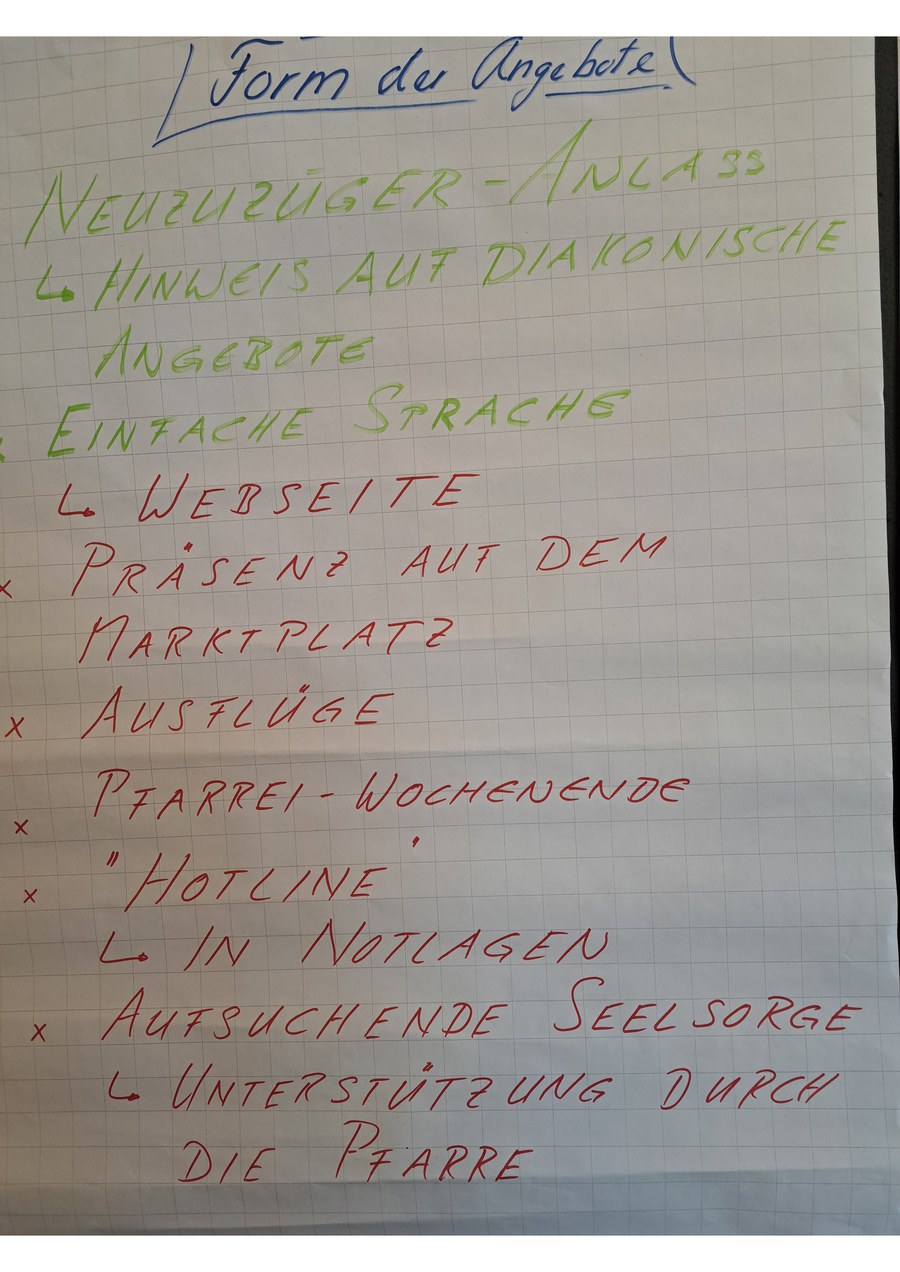 Form der Angebote
NEUZUZÜGER - ANLASS
↳ HINWEIS AUF DIAKONISCHE
ANGEBOTE
x EINFACHE SPRACHE
↳ WEBSEITE
x PRÄSENZ AUF DEM
MARKTPLATZ
x AUSFLÜGE
x PFARREI - WOCHENENDE
x "HOTLINE"
↳ IN NOTLAGEN
x AUFSUCHENDE SEELSORGE
↳ UNTERSTÜTZUNG DURCH
DIE PFARRE